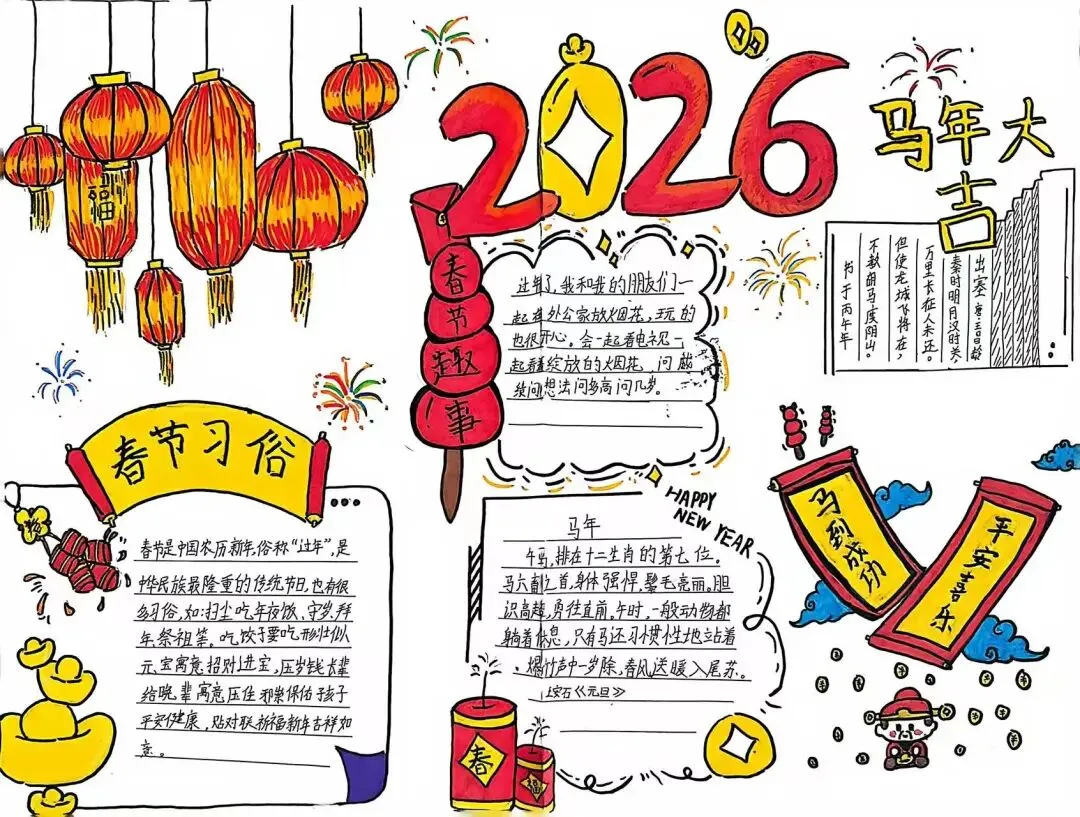 2026
马年大
吉
福
春节趣事
过年了,我和我的朋友们一
起在外公家放烟花,玩的
也很开心。会一起看电视一
起看绽放的烟花,问
续问想法问多高问几岁。
出塞 唐·王昌龄
秦时明月汉时关,
万里长征人未还。
但使龙城飞将在,
不教胡马度阴山。
书于丙午年
春节习俗
春节是中国农历新年,俗称“过年”,是
中华民族最隆重的传统节日,也有很
多习俗,如:扫尘吃年夜饭、守岁、拜
年、祭祖等。吃饺子要吃形状似
元宝寓意招财进宝,压岁钱长辈
给晚辈寓意压住邪祟保佑孩子
平安健康,贴对联祈福新年吉祥如
意。
HAPPY
NEW YEAR
马年
午马,排在十二生肖的第七位。
马六畜之首,身体强悍,鬃毛亮丽。胆
识高超,勇往直前。午时,一般动物都
躺着休息,只有马还习惯性地站着
。爆竹声中一岁除,春风送暖入屠苏。
王安石《元旦》
马到成功
平安喜乐
春
福